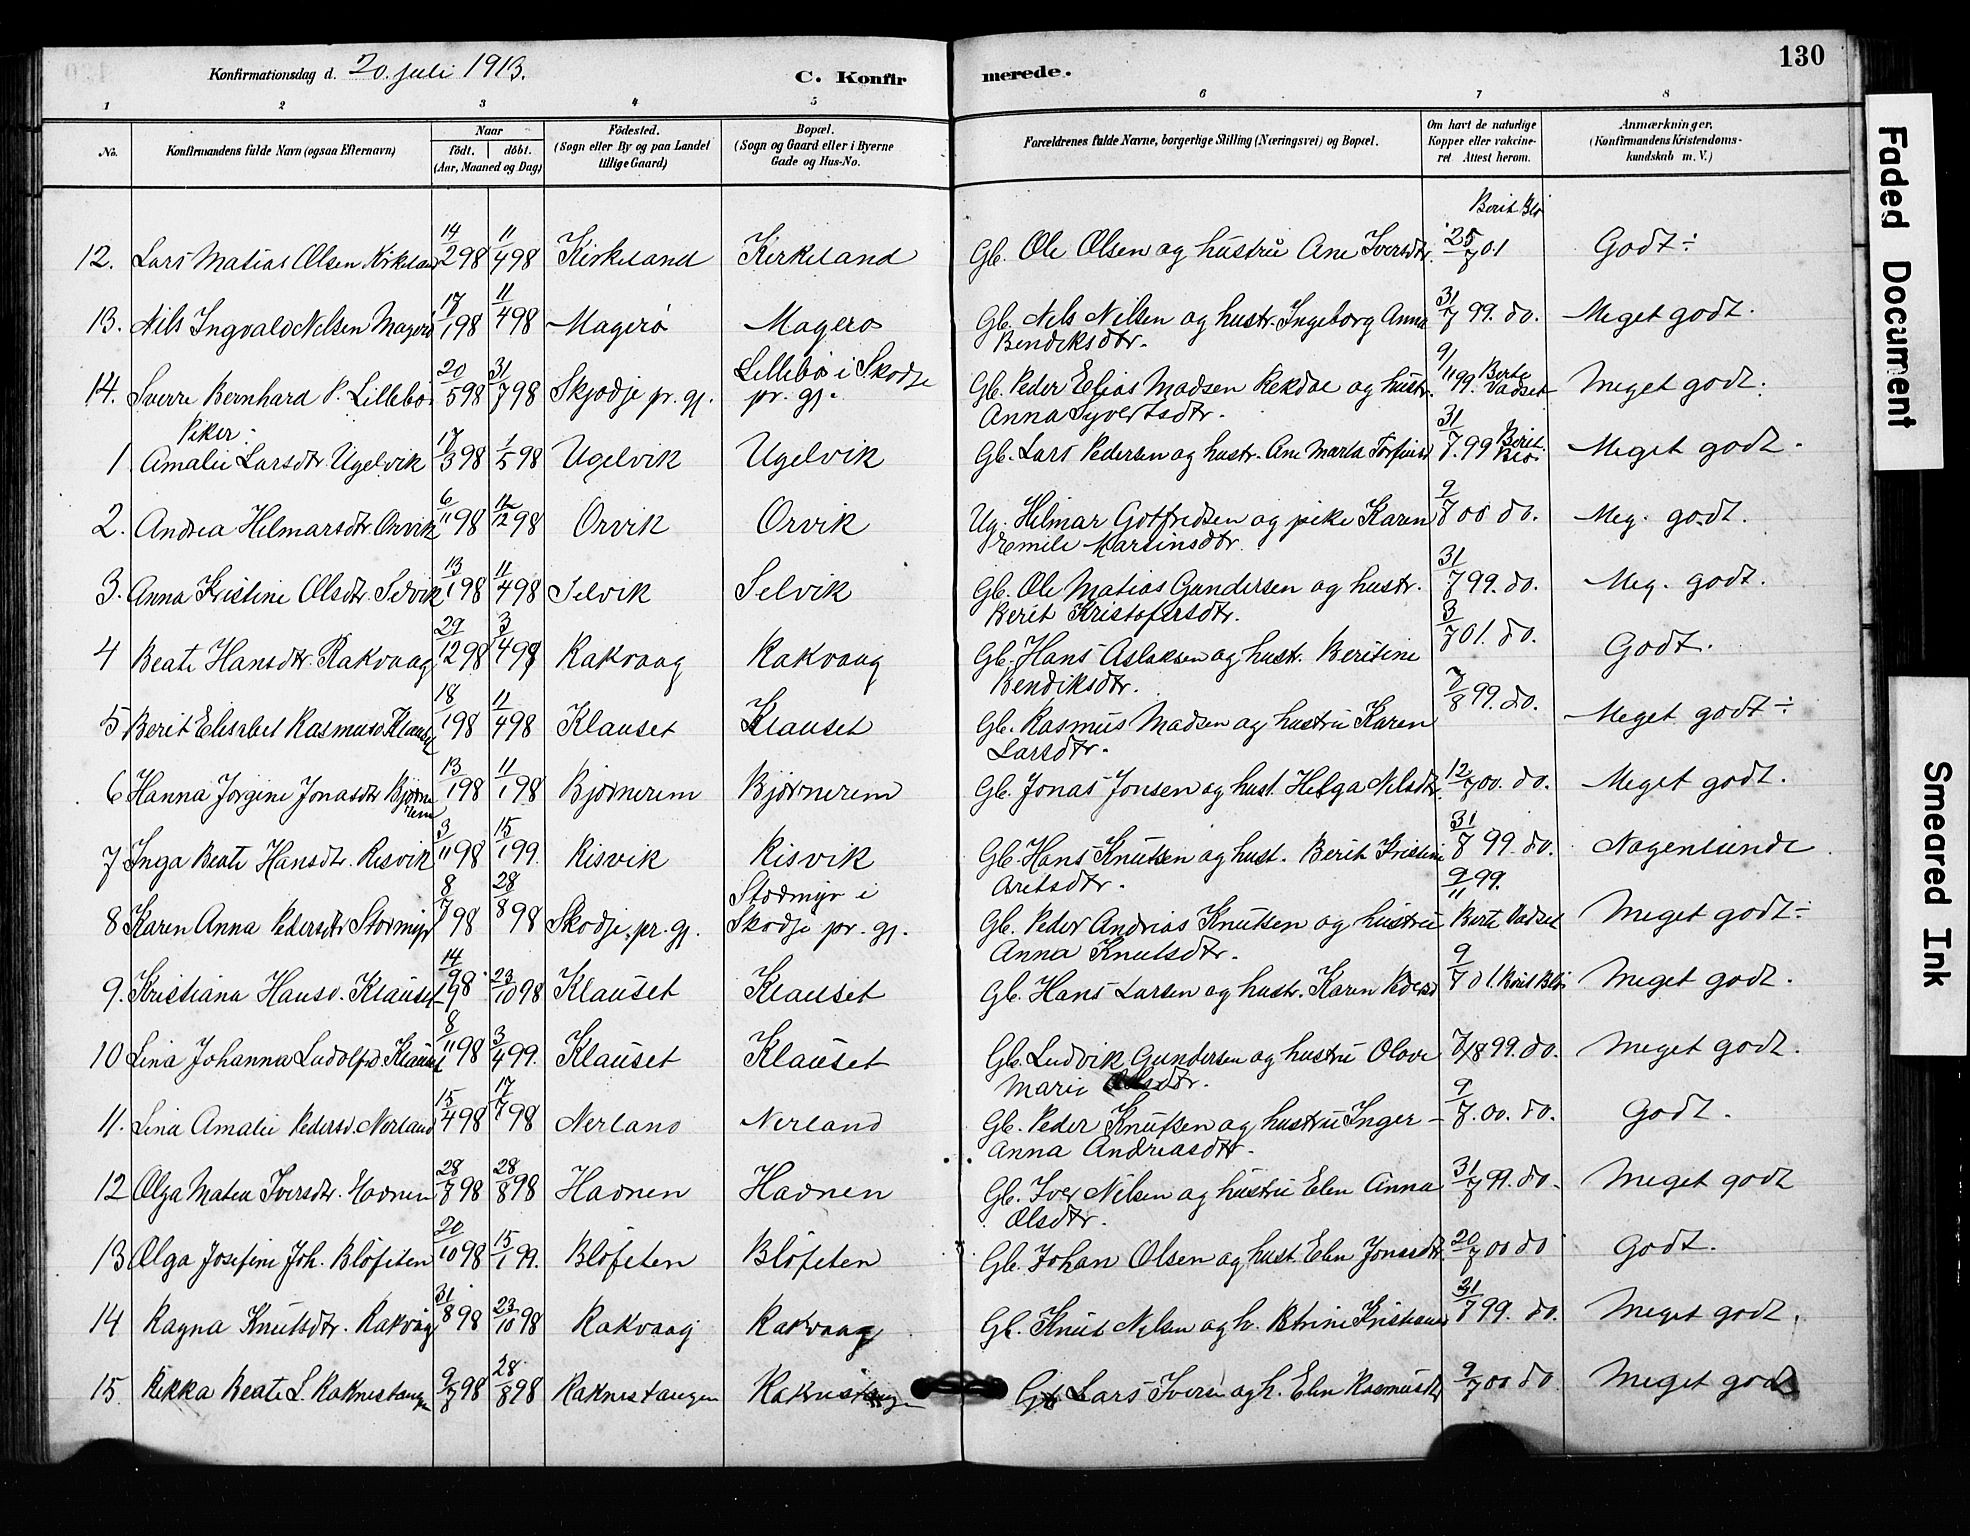 130
Konfirmationsdag d. 20. juli 1913. C. Konfirmerede.
1 2 3 4 5 6 7 8
No. Konfirmandens fulde Navn (ogsaa Efternavn) Naar født. døbt. (Aar, Maaned og Dag) Fødested. (Sogn eller By og paa Landet tillige Gaard) Bopæl. (Sogn og Gaard eller i Byerne Gade og Hus-No. Forældrenes fulde Navne, borgerlige Stilling (Næringsvei) og Bopæl. Om havt de naturlige Kopper eller vakcineret Attest herom. Anmærkninger. (Konfirmandens Kristendomskundskab m. V.)
Berit Blø
12. Lars Matias Olsen Kirkeland 14/2 98 11/4 98 Kirkeland Kirkeland Gb. Ole Olsen og hustru Ane Iversdtr. 25/7 01 Godt ÷
13. Nils Ingvald Nelsen Magerø 17/1 98 11/4 98 Magerø Magerø Gb. Nels Nelsen og hustr. Ingeborg Anna 31/7 99. do. Meget godt.
Bendiksdtr.
14. Sverre Bernhard P. Lillebø 20/5 98 31/7 98 Skjodje pr. gj. Lillebø i Skodje pr. gj. Gb. Peder Elias Madsen Rekdal og hustr. 9/11 99. Berte Vadset Meget godt.
Anna Syvertsdtr.
Piker:
1 Amalie Larsdtr Ugelvik 17/3 98 1/5 98 Ugelvik Ugelvik Gb. Lars Pedersen og hustr. Ane Marta Torfinsd 31/7. 99 Berit Blø. Meget godt.
2. Andrea Helmarsdtr. Orvik 6/11 98 11/12 98 Orvik Orvik Ug. Hilmar Gotfredsen og pike Karen 9/7 00 do. Meg. godt.
Emile Martinsdtr.
3. Anna Kristine Olsdtr. Selvik 13/1 98 11/4 98 Selvik Selvik Gb. Ole Matias Gundersen og hustr. 31/7 99. do. Meg. godt.
Berit Kristofersdtr.
4 Beate Hansdtr. Rakvaag 29/12 98 3/4 98 Rakvaag Rakvaag Gb. Hans Aslaksen og hust. Beritine 3/7 01. do. Godt.
Bendiksdtr.
5 Berit Elisabet Rasmusd Klauset 18/1 98 11/4 98 Klauset Klauset Gb. Rasmus Madsen og hustru Karen 7/8 99. do. Meget godt ÷
Larsdtr.
6 Hanna Jørgine Jonasdtr Bjørnerem 13/1 98 11/1 98 Bjørnerem Bjørnerem Gb. Jonas Jonsen og hust. Helga Nilsdtr. 12/7 00. do. Meget godt.
7 Inga Beate Hansdtr. Risvik 3/11 98 15/1 99. Risvik Risvik Gb. Hans Knutsen og hust. Berit Kristine 31/8 99. do. Nogenlunde
Aretsdtr.
8 Karen Anna Pedersdtr Stormyr 8/7 98 28/8 98 Skodje pr. gj. Stormyr i Skodje pr. gj. Gb. Peder Andrias Knutsen og hustru 9/11 99. Berte Vadset Meget godt ÷
Anna Knutsdtr.
9. Kristiana Hansd. Klauset 14/9 98 23/10 98 Klauset Klauset Gb. Hans Larsen og hustr. Karen Pedersd 9/7 01. Berit Blø Meget godt.
10 Lina Johanna Ludolfsd. Klauset 8/11 98 3/4 99. Klauset Klauset Gb. Ludvik Gundersen og hustru Olave 7/8 99. do. Meget godt.
Marie Olsdtr.
11. Lina Amalie Pedersd. Nerland 15/4 98 17/7 98 Nerland Nerland Gb. Peder Knutsen og hustru Inger 9/7. 00. do. Godt.
Anna Andreasdtr.
12 Olga Matea Iversdtr. Havnen 28/7 98 28/8 98 Havnen Havnen Gb. Iver Nilsen og hustru Elen Anna 31/7 99. do. Meget godt
Olsdtr.
13 Olga Josefine Joh. Bløfeten 20/10 98 15/1 99. Bløfeten Bløfeten Gb. Johan Olsen og hust. Elen Jonasdtr. 20/7 00 do Godt.
14 Ragna Knutsdtr. Rakvåg 31/8 98 23/10 98 Rakvaag Rakvaag Gb. Knut Nelsen og h. Petrine Kristiansd 31/7 99. do. Meget godt.
15 Rikka Beate L. Raknestangen 9/7 98 28/8 98 Raknestangen Raknestangen Gb Lars Iversen og h. Elen Rasmusdtr 9/7 00 do Meget godt
Faded Document
Smeared Ink